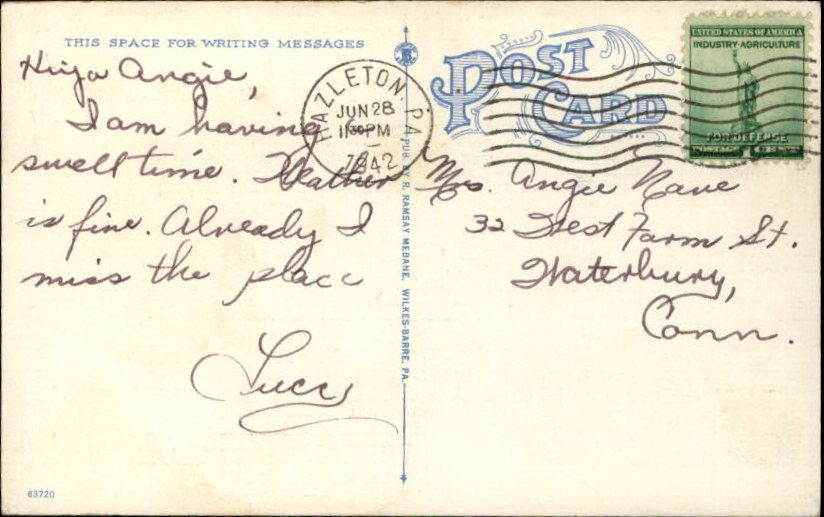 THIS SPACE FOR WRITING MESSAGES
Hiya Angie,
I am having
swell time. Weather
is fine. Already I
miss the place
Lucy
63720
PUB. BY R. RAMSAY MEBANE, WILKES-BARRE, PA.
POST CARD
HAZLETON, PA.
JUN 28
11 30 PM
1942
UNITED STATES OF AMERICA
INDUSTRY·AGRICULTURE
FOR DEFENSE
POSTAGE 1 CENT
Mrs. Angie Nave
32 West Farm St.
Waterbury,
Conn.